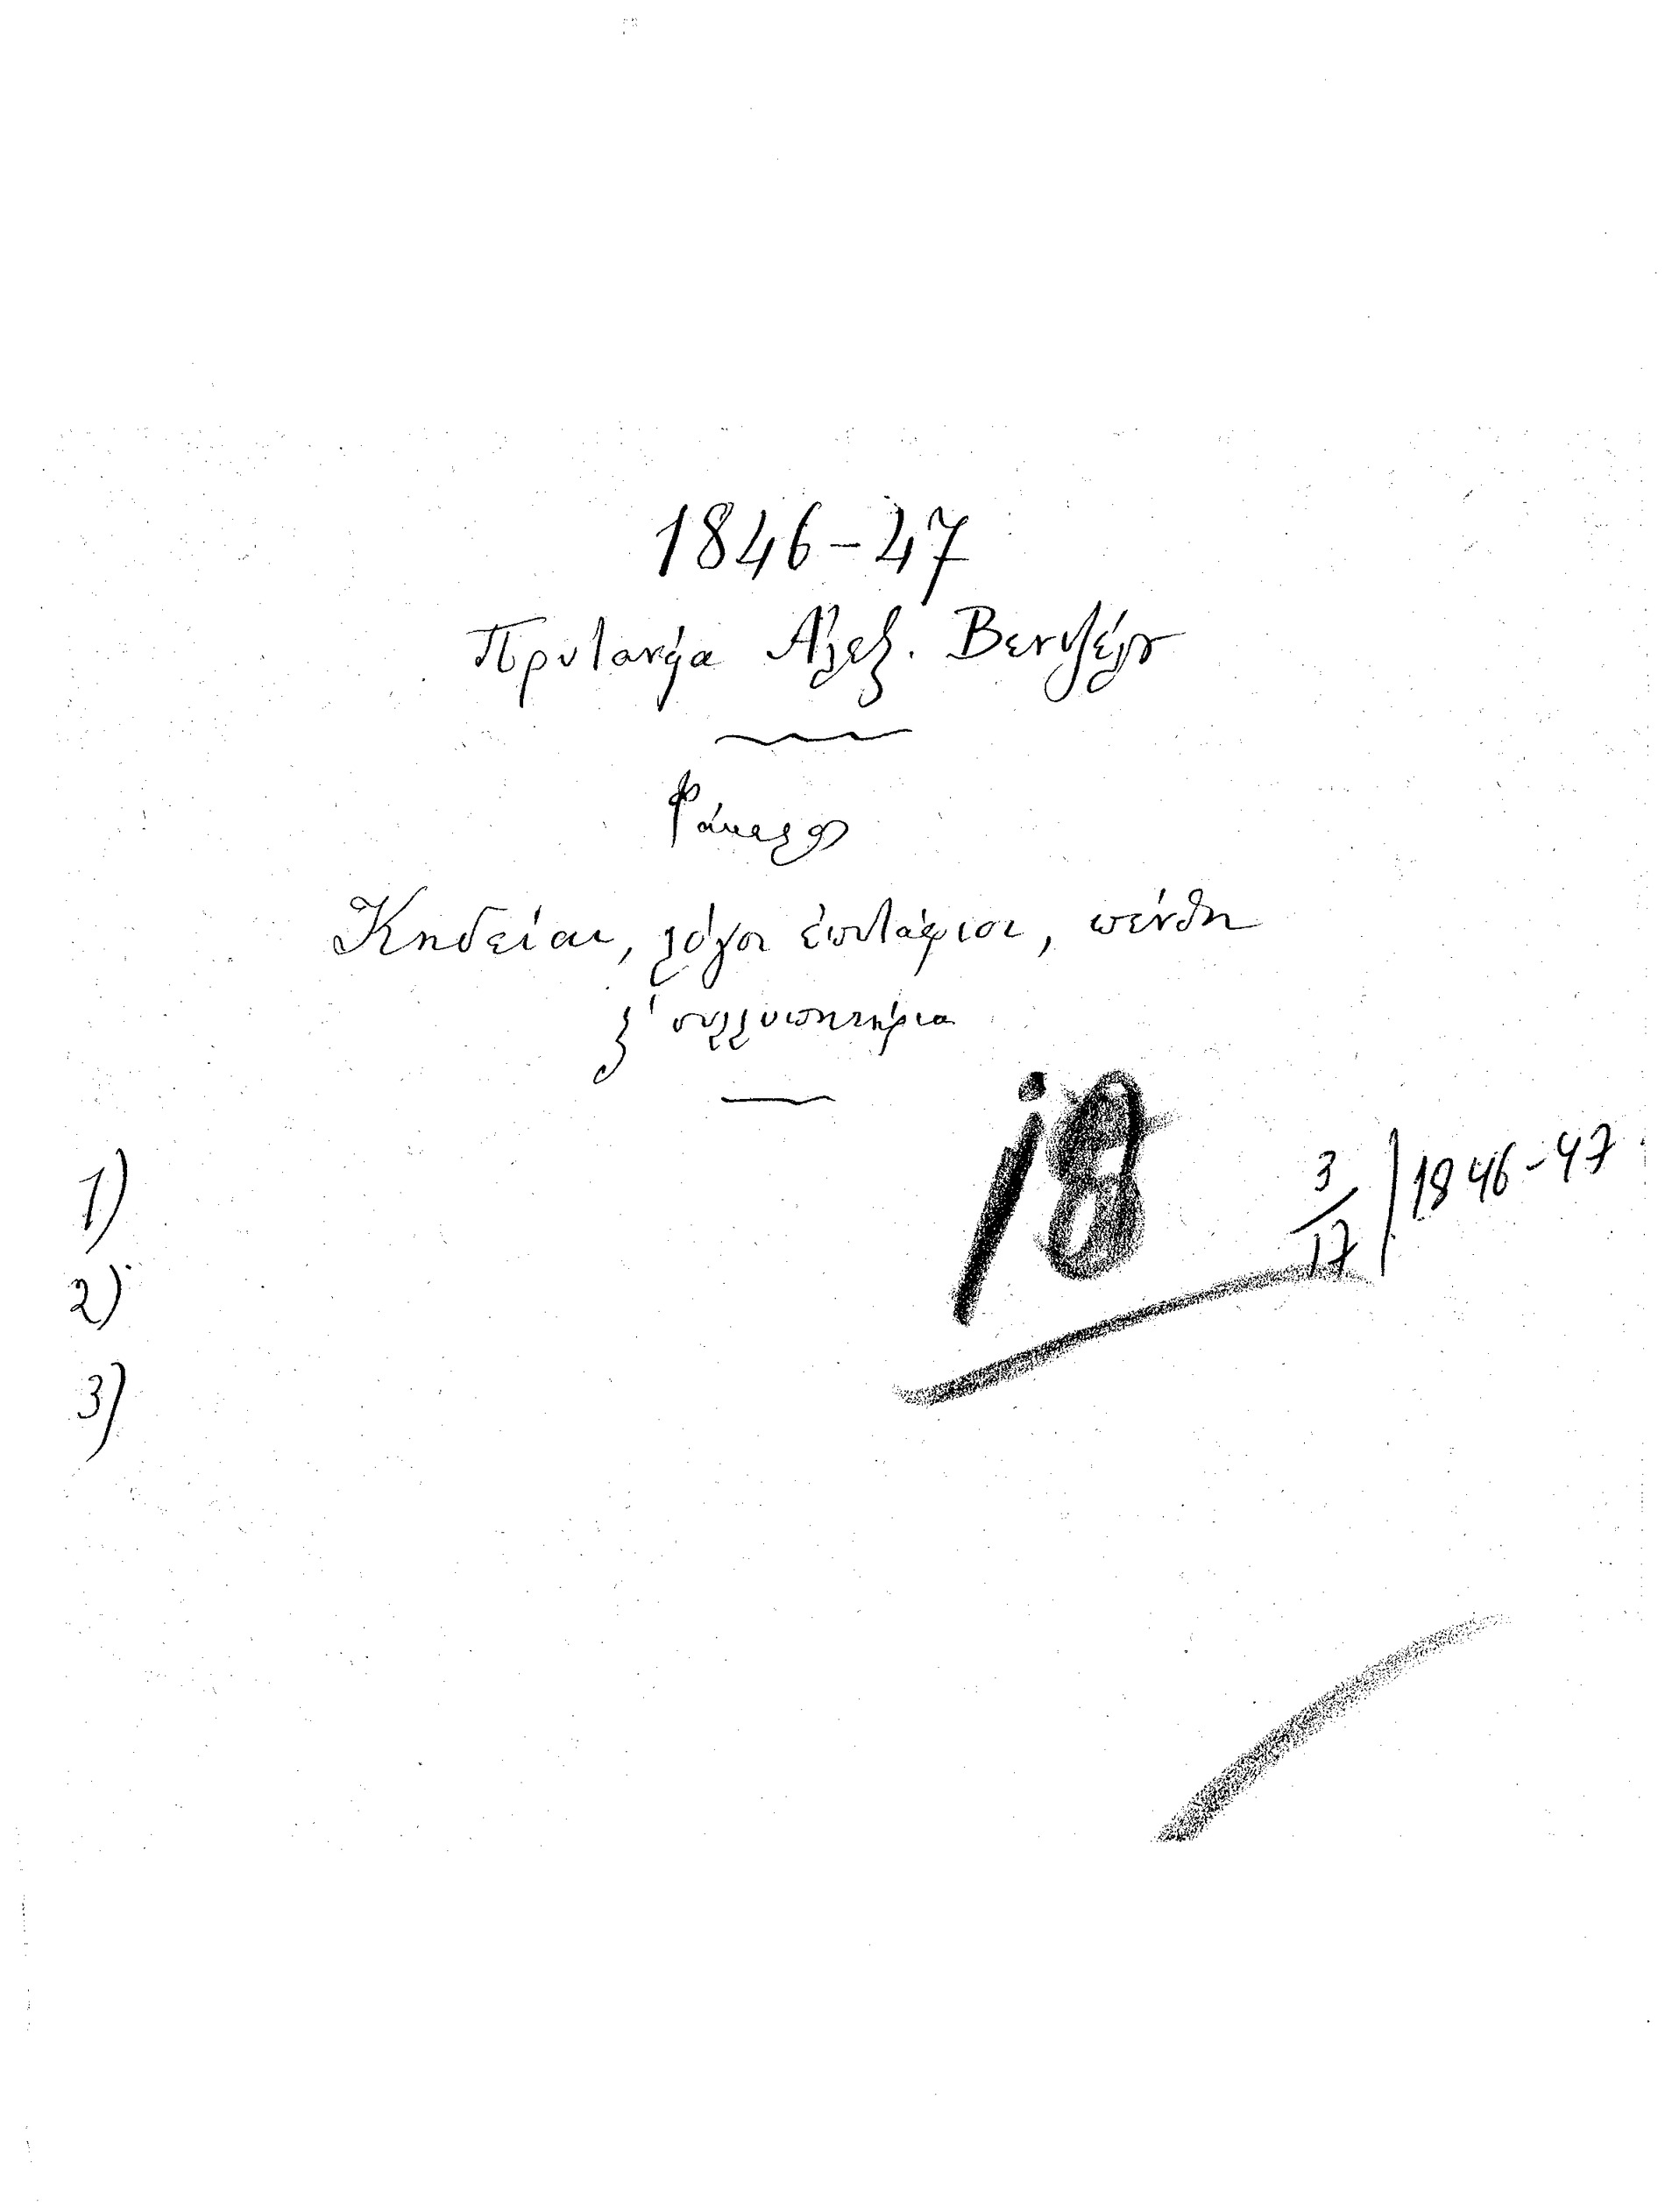 1846-47
Πρυτανεία Ἀλεξ. Βενιζέλου
Φάκελος
Κηδείαι, λόγοι ἐπιτάφιοι, πένθη
ϗ συλλυπητήρια
18
3/17 | 1846-47
1)
2)
3)